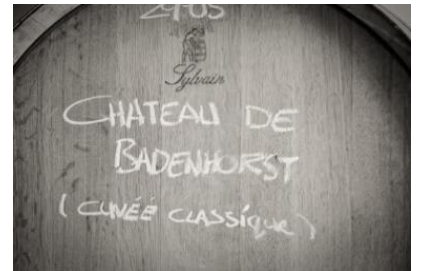 29-05
Sylvain
CHATEAU DE
BADENHORST
(CUVÉÉ CLASSíQUE)